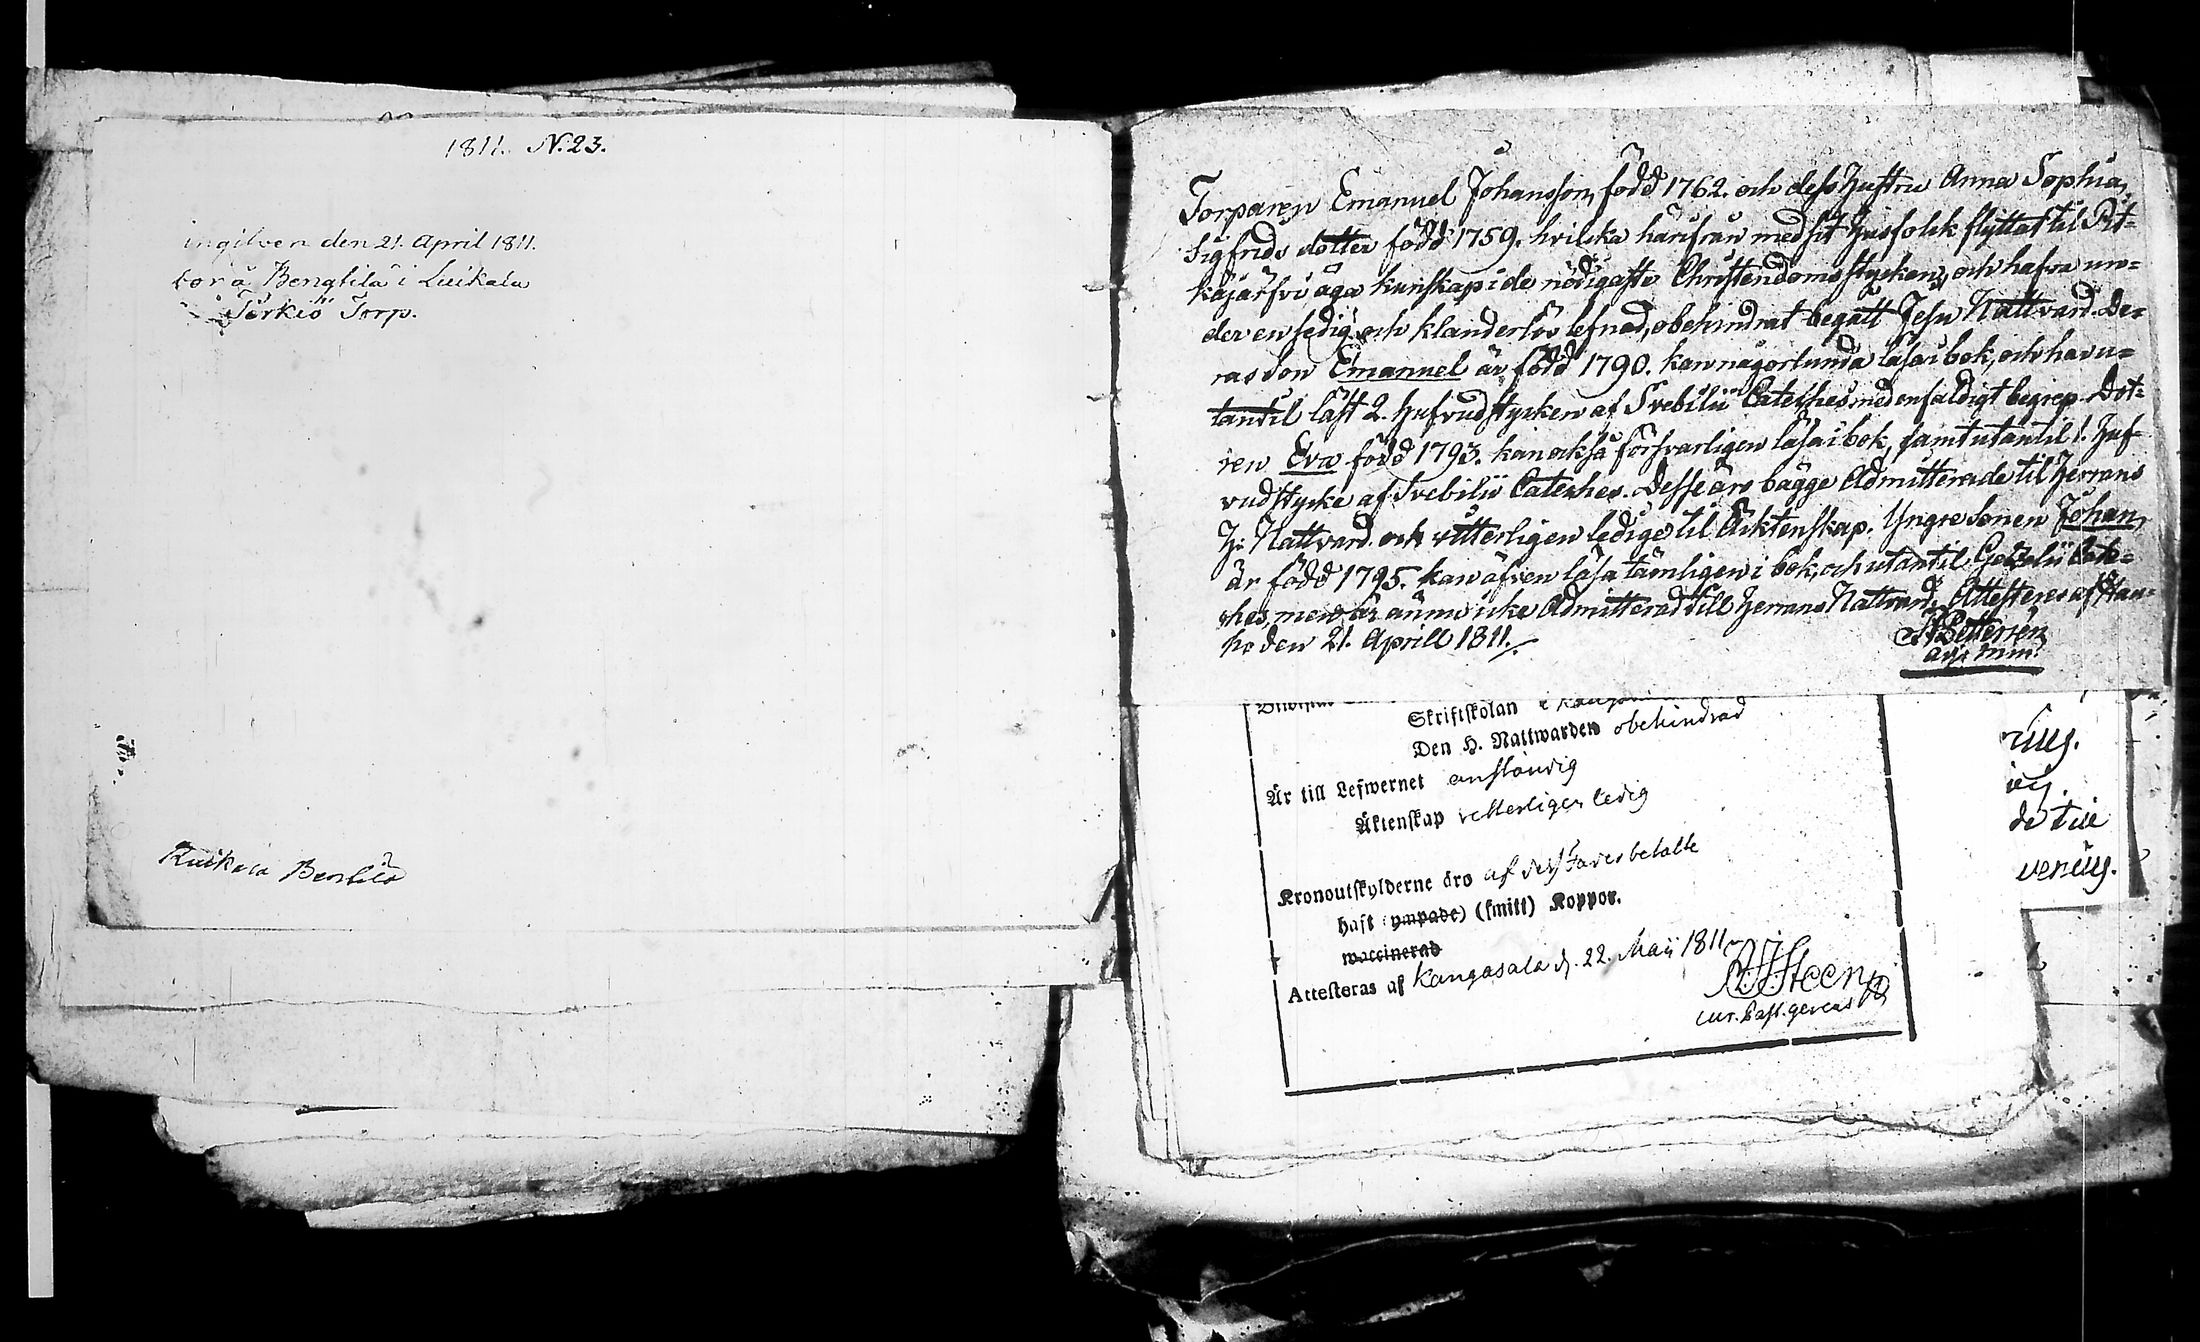 1811. N. 23.
ingilven den 21. April 1811.
bor å Bengtila i Luikala
Torp.
Luikala Bentila
Torparen Emanuel Johansson, född 1762. och dess Hustru Anna Sophia
Sigfrids dotter född 1759. hvilka härifrån med sit Husfolck flyttat til Pit-
käjärfvi äga kunskap i de nödigaste Christendoms stycken, och hafva un-
der en sedig och klanderlös lefnad, obehindrat begått Jesu Nattvard. De-
ras son Emanuel är född 1790. kan någorlunda läsa i bok, och har u-
tantil läst 2. Hufvudstycken af Svebilii Cateches med enfaldigt begrep. Dot-
ren Eva född 1793. kan också försvarligen läsa i bok, samt utantil 1. Huf-
vudstycke af Svebilii Cateches. Desse äro bägge Admitterade til Herrans
H: Nattvard. och vitterligen ledige til Äcktenskap. Yngre Sonen Johan,
är född 1795. kan äfven läsa tämligen i bok, och utantil Gezelii Cate-
ches, men är ännu icke Admitterad till Herrans Nattvard. Attesteres af Hau-
ho den 21. Aprill 1811.
Skriftskolan i
Den H. Nattwarden obehindrad
Är till Lefwernet anständig
Äktenskap vetterligen ledig
Kronoutskylderne äro af des Fader betalte
haft (ympade) (smitt) Koppor.
waccinerad
Attesteras af Kangasala d. 22. Maii 1811
Steen
cur. Past. gerens